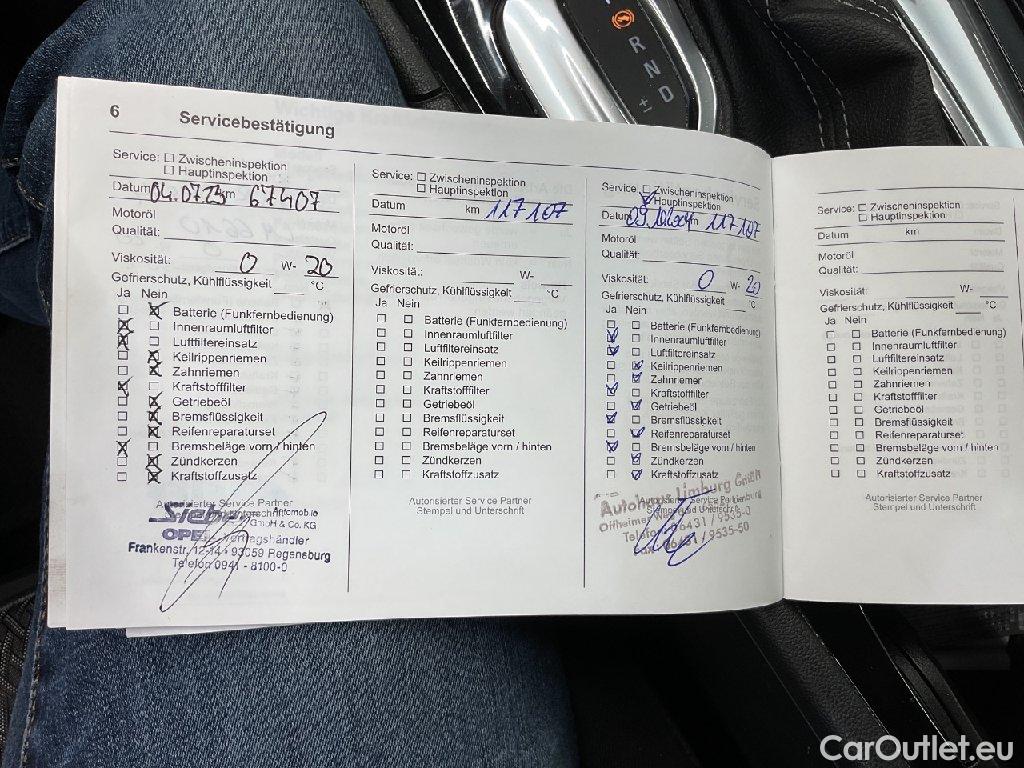 R
N
D
±
6 Servicebestätigung
Service: Zwischeninspektion
Hauptinspektion
Datum 04.07.23 km 67407
Motoröl
Qualität:
Viskosität: 0 W- 20
Gefrierschutz, Kühlflüssigkeit °C
Ja Nein
Batterie (Funkfernbedienung)
Innenraumluftfilter
Luftfiltereinsatz
Keilrippenriemen
Zahnriemen
Kraftstofffilter
Getriebeöl
Bremsflüssigkeit
Reifenreparaturset
Bremsbeläge vorn / hinten
Zündkerzen
Kraftstoffzusatz
Autorisierter Service Partner
GmbH & Co. KG
OPEL
Frankenstr. 12-14 • 93059 Regensburg
Telefon 0941 - 8100-0
Service: Zwischeninspektion
Hauptinspektion
Datum km 117107
Motoröl
Qualität:
Viskosität: W-
Gefrierschutz, Kühlflüssigkeit °C
Ja Nein
Batterie (Funkfernbedienung)
Innenraumluftfilter
Luftfiltereinsatz
Keilrippenriemen
Zahnriemen
Kraftstofffilter
Getriebeöl
Bremsflüssigkeit
Reifenreparaturset
Bremsbeläge vorn / hinten
Zündkerzen
Kraftstoffzusatz
Autorisierter Service Partner
Stempel und Unterschrift
Service: Zwischeninspektion
Hauptinspektion
Datum 117107
Motoröl
Qualität:
Viskosität: 0 W- 20
Gefrierschutz, Kühlflüssigkeit °C
Ja Nein
Batterie (Funkfernbedienung)
Innenraumluftfilter
Luftfiltereinsatz
Keilrippenriemen
Zahnriemen
Kraftstofffilter
Getriebeöl
Bremsflüssigkeit
Reifenreparaturset
Bremsbeläge vorn / hinten
Zündkerzen
Kraftstoffzusatz
Autohaus Limburg GmbH
Telefon 06431 / 9535-0
Fax 06431 / 9535-50
Service: Zwischeninspektion
Hauptinspektion
Datum km
Motoröl
Qualität:
Viskosität: W-
Gefrierschutz, Kühlflüssigkeit °C
Ja Nein
Batterie (Funkfernbedienung)
Innenraumluftfilter
Luftfiltereinsatz
Keilrippenriemen
Zahnriemen
Kraftstofffilter
Getriebeöl
Bremsflüssigkeit
Reifenreparaturset
Bremsbeläge vorn / hinten
Zündkerzen
Kraftstoffzusatz
Autorisierter Service Partner
Stempel und Unterschrift
CarOutlet.eu